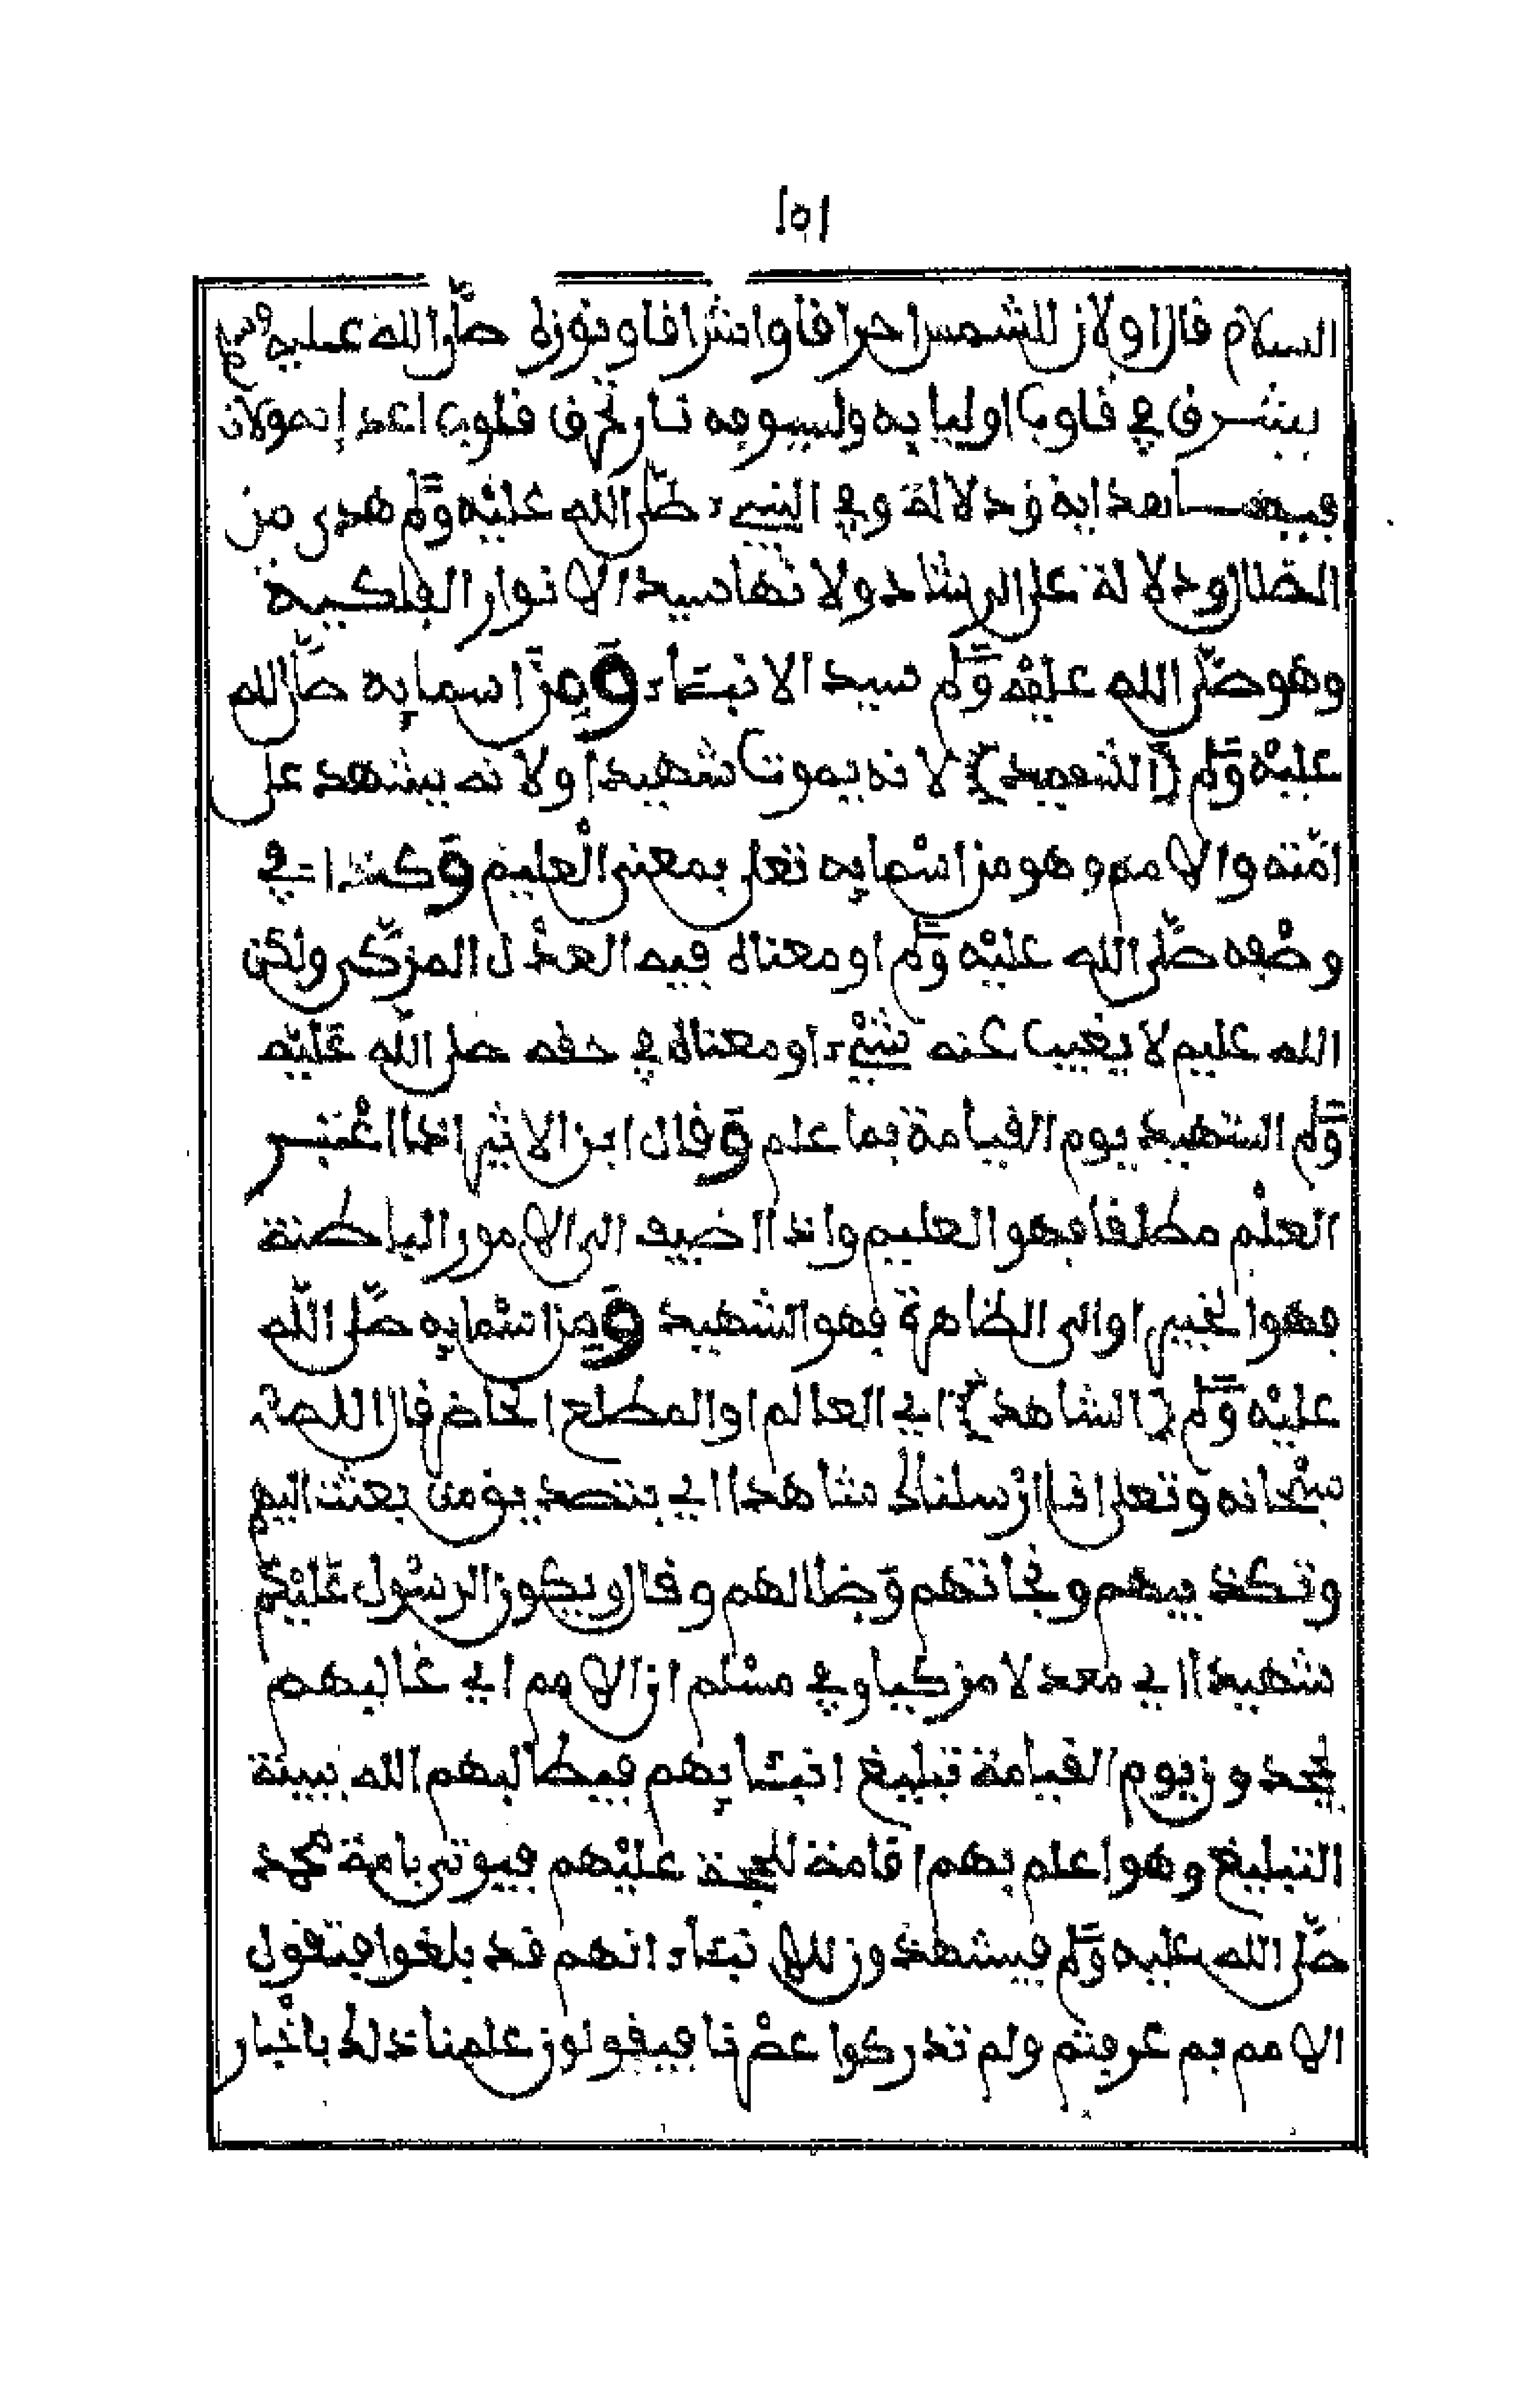 ١٥١
السلام قال اولان للشمس احراقا واشراقا ونوره صلى الله عليه وسلم
يشرق في قلوب اوليايه ولسيوفه نار تحرق قلوب اعدايه ولان
فيها هداية ودلالة وفي النبيء صلى الله عليه وسلم هدى من
الضلال ودلالة على الرشاد ولانها سيد الانوار الفلكية
وهو صلى الله عليه وسلم سيد الانبياء ومن اسمايه صلى الله
عليه وسلم (الشهيد) لانه يموت شهيدا ولانه يشهد على
امته والامم وهو من اسمايه تعلى بمعنى العليم وكذا في
وصفه صلى الله عليه وسلم او معناه فيه العدل المزكى ولكن
الله عليم لا يغيب عنه شيء او معناه في حقه صلى الله عليه
وسلم الشهيد يوم القيامة بما علم وقال ابن الاثير اذا اعتبر
العلم مطلقا فهو العليم واذا اضيف الى الامور الباطنة
فهو الخبير او الى الظاهرة فهو الشهيد ومن اسمايه صلى الله
عليه وسلم (الشاهد) اي العالم او المطلع الحاضر قال الله
سبحانه وتعلى انا ارسلناك شاهدا اي بتصديق من بعثت اليهم
وتكذيبهم ونجاتهم وضلالهم وقال ويكون الرسول عليكم
شهيدا اي معدلا مزكيا وفي مسلم ان الامم اي غالبهم
يجحدون يوم القيامة تبليغ انبيايهم فيطالبهم الله ببينة
التبليغ وهو اعلم بهم اقامة للحجة عليهم فيوتى بامة محمد
صلى الله عليه وسلم فيشهدون للانبياء انهم قد بلغوا فتقول
الامم بم عرفتم ولم تدركوا عصرنا فيقولون علمنا ذلك باخبار